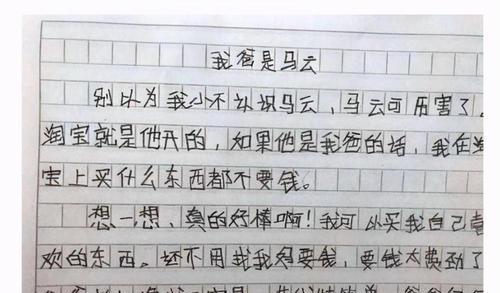 我爸是马云
别以为我小不认识马云，马云可历害了。
淘宝就是他开的，如果他是我爸的话，我在淘
宝上买什么东西都不要钱。
想一想，真的好棒啊！我可以买我自己喜
欢的东西。还不用我找妈要钱，要钱太费劲了